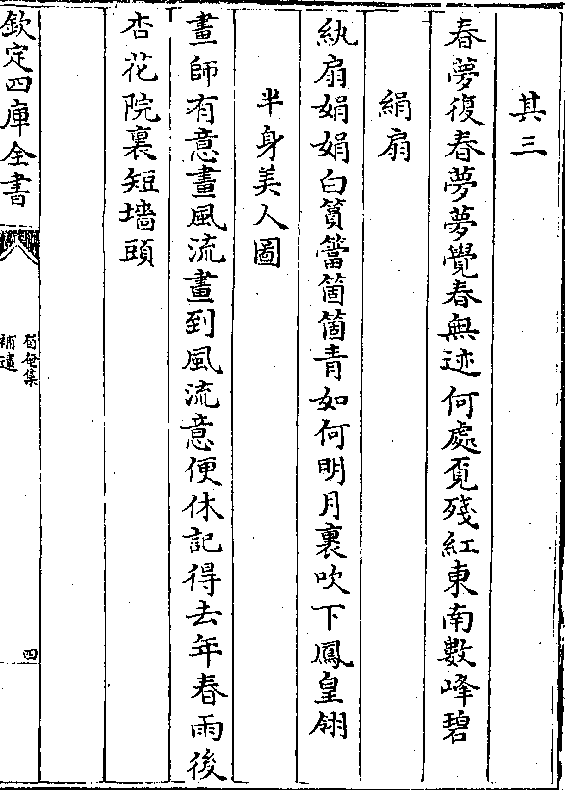 其三
春夢復春夢夢覺春無迹何處覔殘紅東南數峰碧
絹扇
紈扇娟娟白篔簹箇箇青如何明月裏吹下鳳皇翎
半身美人圖
畫師有意畫風流畫到風流意便休記得去年春雨後
杏花院裏短墻頭
欽定四庫全書
集
補遺
四